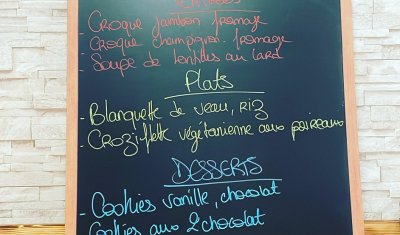 - Croque jambon fromage
- Croque champignon fromage
- Soupe de lentilles au lard
Plats
- Blanquette de veau, RIZ
- Croziflette végétarienne aux poireaux
DESSERTS
- Cookies vanille, chocolat
Cookies aux 2 chocolat